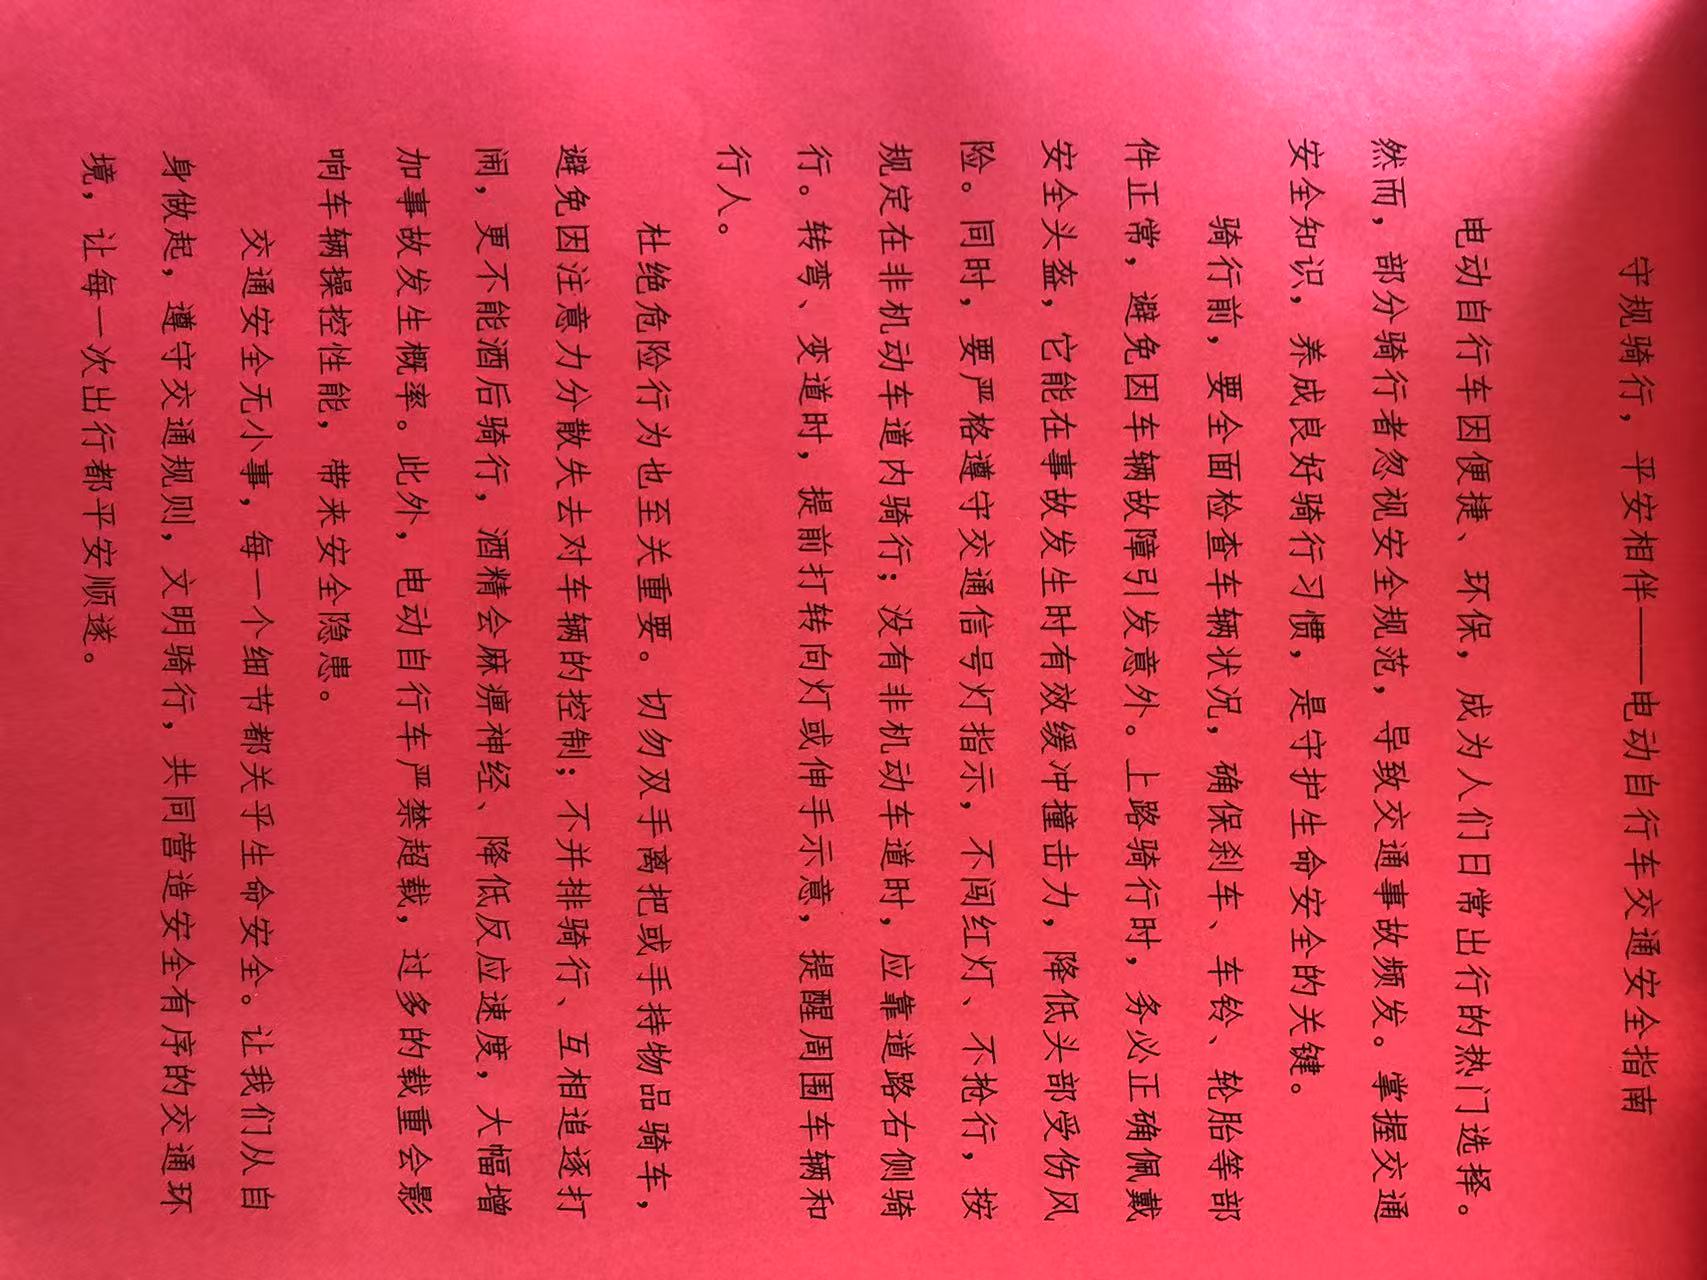 守规骑行，平安相伴——电动自行车交通安全指南
电动自行车因便捷、环保，成为人们日常出行的热门选择。
然而，部分骑行者忽视安全规范，导致交通事故频发。掌握交通
安全知识，养成良好骑行习惯，是守护生命安全的关键。
骑行前，要全面检查车辆状况，确保刹车、车铃、轮胎等部
件正常，避免因车辆故障引发意外。上路骑行时，务必正确佩戴
安全头盔，它能在事故发生时有效缓冲撞击力，降低头部受伤风
险。同时，要严格遵守交通信号灯指示，不闯红灯、不抢行，按
规定在非机动车道内骑行；没有非机动车道时，应靠道路右侧骑
行。转弯、变道时，提前打转向灯或伸手示意，提醒周围车辆和
行人。
杜绝危险行为也至关重要。切勿双手离把或手持物品骑车，
避免因注意力分散失去对车辆的控制；不并排骑行、互相追逐打
闹，更不能酒后骑行，酒精会麻痹神经、降低反应速度，大幅增
加事故发生概率。此外，电动自行车严禁超载，过多的载重会影
响车辆操控性能，带来安全隐患。
交通安全无小事，每一个细节都关乎生命安全。让我们从自
身做起，遵守交通规则，文明骑行，共同营造安全有序的交通环
境，让每一次出行都平安顺遂。